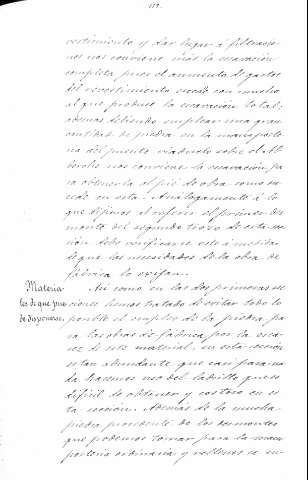 119.
vestimiento y dar lugar á filtracio-
nes nos conviene más la escavación
completa pues el aumento de gastos
del revestimiento excede con mucho
al que produce la escavación total:
ademas debiendo emplear una gran
cantidad de piedra en la mamposte-
ria del puente viaducto sobre el Al-
berche nos conviene la escavación pa-
ra obtenerla al pié de obra como su-
cede en esta. Análogamente á lo
que dijimos al referir el primer des-
monte del segundo trozo de esta sec-
ción debe verificarse este á medida
de que las necesidades de la obra de
fábrica lo exijan.
Materia-
les de que pue
de disponerse.
Así como en las dos primeras se-
cciones hemos tratado de evitar todo lo
posible el empleo de la piedra pa-
ra las obras de fábrica por la esca-
sez de este material, en esta sección
es tan abundante que casi para na-
da hacemos uso del ladrillo que es
dificil de obtener y costoso en es-
ta sección. Además de la mucha
piedra procedente de los desmontes
que podemos tomar para la mam-
posteria ordinaria y rellenos se en-